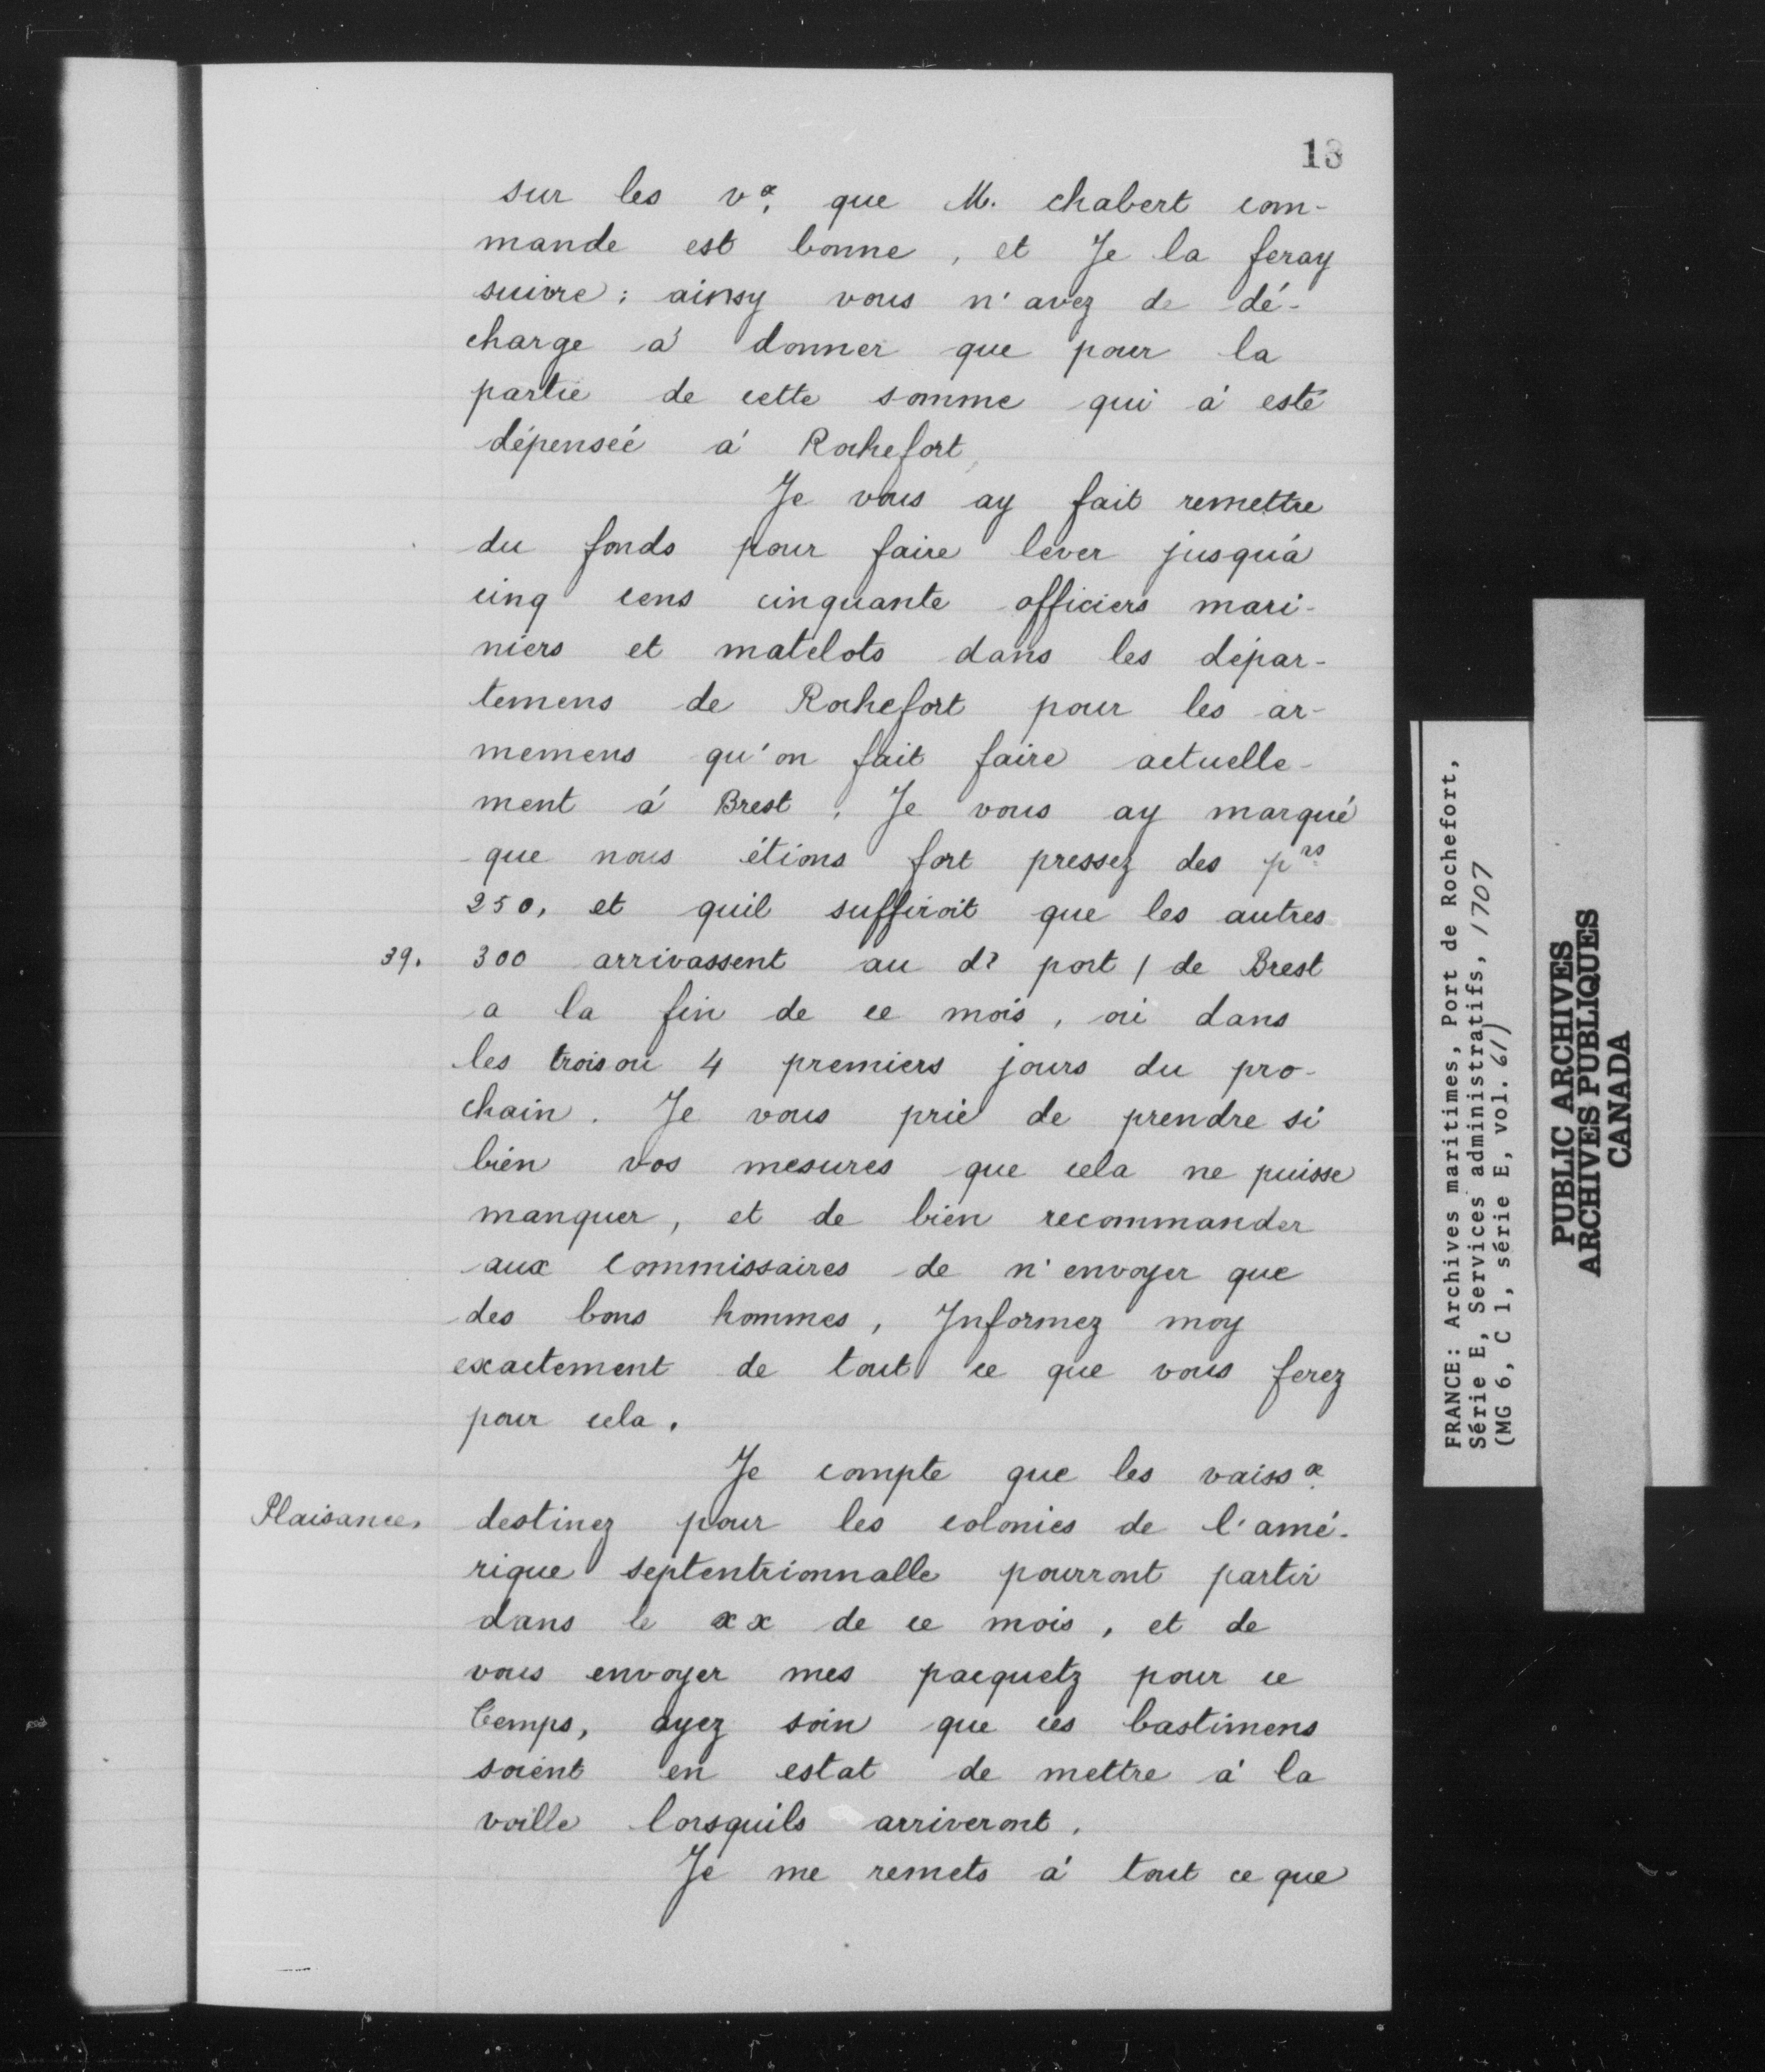 13
sur les vx. que M. chabert com-
mande est bonne, et Je la feray
suivre; ainsy vous n'avez de dé-
charge à donner que pour la
partie de cette somme qui à esté
dépenséé à Rochefort,
Je vous ay fait remettre
du fonds pour faire lever jusqu'à
cinq cens cinquante officiers mari-
niers et matelots dans les dépar-
temens de Rochefort pour les ar-
memens qu'on fait faire actuelle-
ment à Brest. Je vous ay marqué
que nous étions fort pressez des prs
250, et quil suffiroit que les autres
39. 300 arrivassent au dt port / de Brest
a la fin de ce mois, oú dans
les trois oú 4 premiers jours du pro-
chain. Je vous prie de prendre si
bien vos mesures que cela ne puisse
manquer, et de bien recommander
aux Commissaires de n'envoyer que
des bons hommes, Informez moy
exactement de tout ce que vous ferez
pour cela.
Je compte que les vaissx.
Plaisance. destinez pour les colonies de l'amé-
rique septentrionnalle pourront partir
dans le xx de ce mois, et de
vous envoyer mes pacquetz pour ce
temps, ayez soin que ces bastimens
soient en estat de mettre à la
voille lorsquils arriveront.
Je me remets à tout ce que
FRANCE: Archives maritimes, Port de Rochefort,
Série E, Services administratifs, 1707
(MG 6, C 1, série E, vol. 61)
PUBLIC ARCHIVES
ARCHIVES PUBLIQUES
CANADA